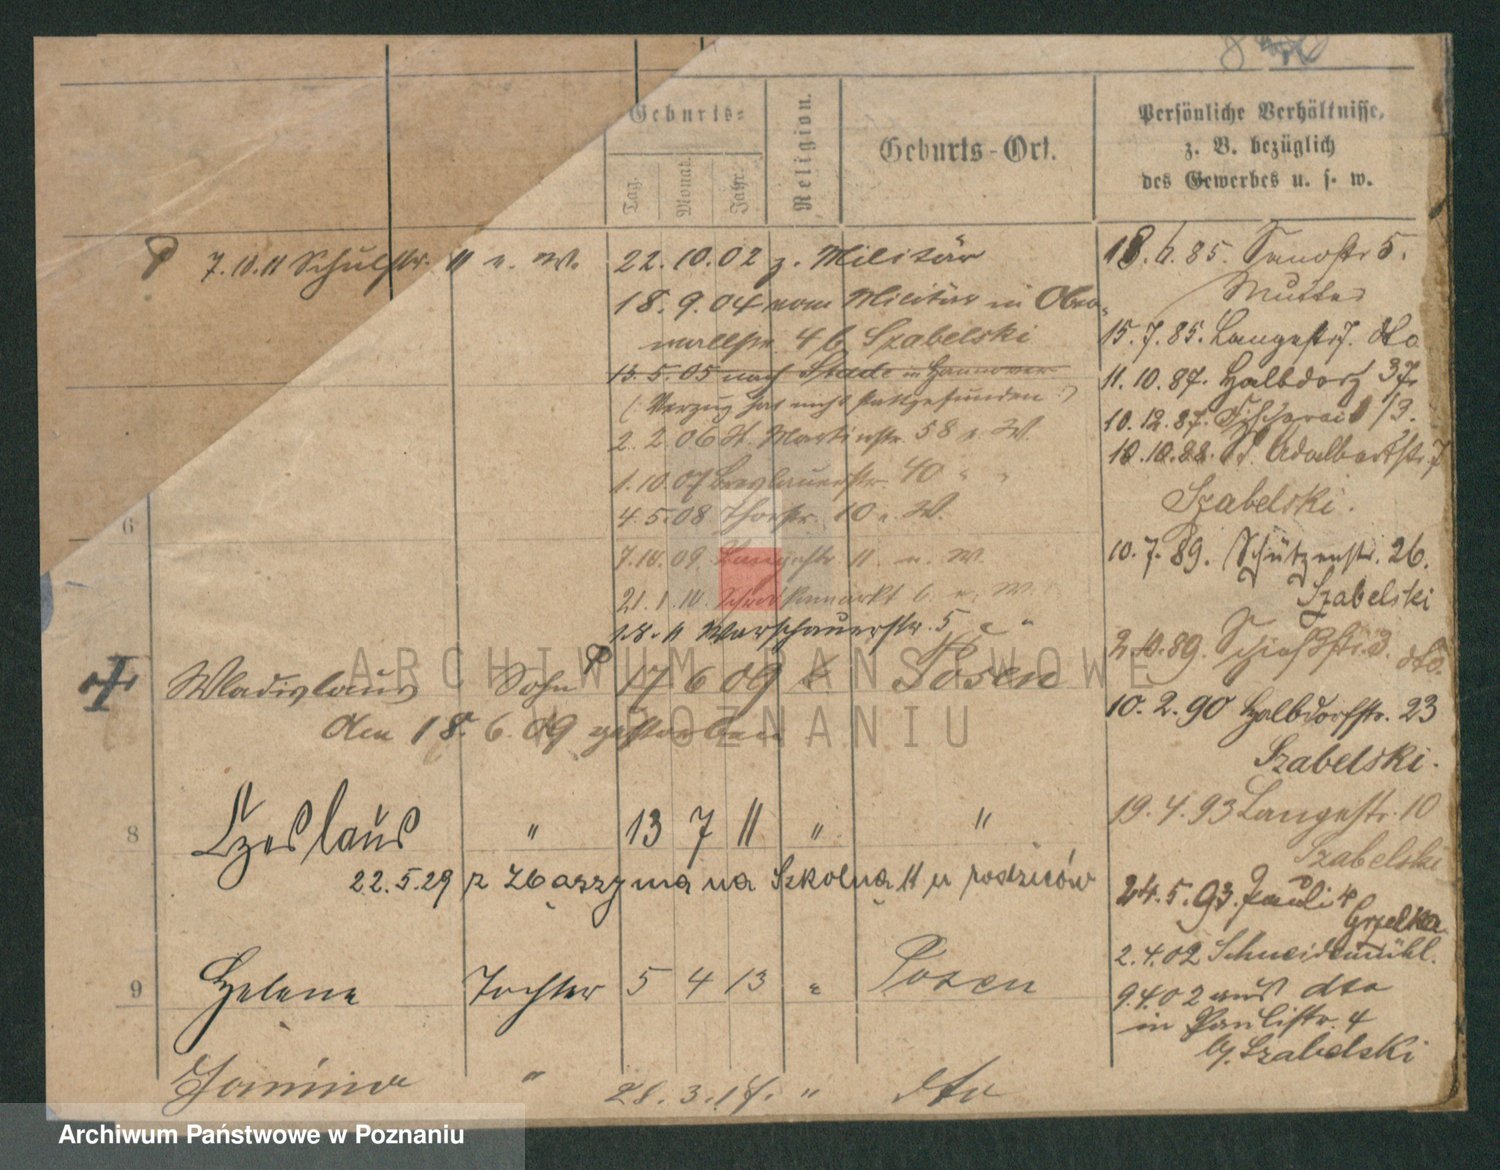 Geburts-
Tag.
Monat.
Jahr.
Religion.
Geburts-Ort.
Persönliche Verhältnisse,
z. B. bezüglich
des Gewerbes u. s. w.
7.10.11 Schulstr. 11 u. W.
22.10.02 z. Militär
18.9.04 vom Militär in
4 b. Szabelski
15.5.05 nach Stade in Hannover
(: Verzug hat nicht stattgefunden :)
2.2.06 St. Martinstr. 58 u. W.
1.10.07 Breslauerstr. 40 " "
4.5.08 Thorstr. 10 u. W.
7.10.09 Langestr. 11 u. W.
21.1.10. 6 u. W.
1.8.11 Warschauerstr. 5 " "
6
Wladislaus Sohn 17 6 09 k Posen
den 18.6.09 gestorben
8 Czeslaus " 13 7 11 " "
22.5.29 z Zbaszynia na Szkolna 11 u rodziców
9 Helene Tochter 5 4 13 " Posen
Janina " 28.3.17. " dto
18.6.85. 5.
Mutter
15.7.85. Langestr. 7. dto
11.10.87. Halbdorf 37.
10.12.87. Fischerei 13.
10.10.88. St. Adalbertstr. 7
Szabelski.
10.7.89. Schützenstr. 26.
Szabelski
2.10.89. Schießstr. 3. dto.
10.2.90 Halbdorfstr. 23
Szabelski.
19.4.93 Langestr. 10
Szabelski
24.5.93. Pauli 4
Grzelka
2.4.02 Schneidemühl.
9.4.02 aus dto
in Paulistr. 4
b/. Szabelski
ARCHIWUM PAŃSTWOWE
W POZNANIU
Archiwum Państwowe w Poznaniu